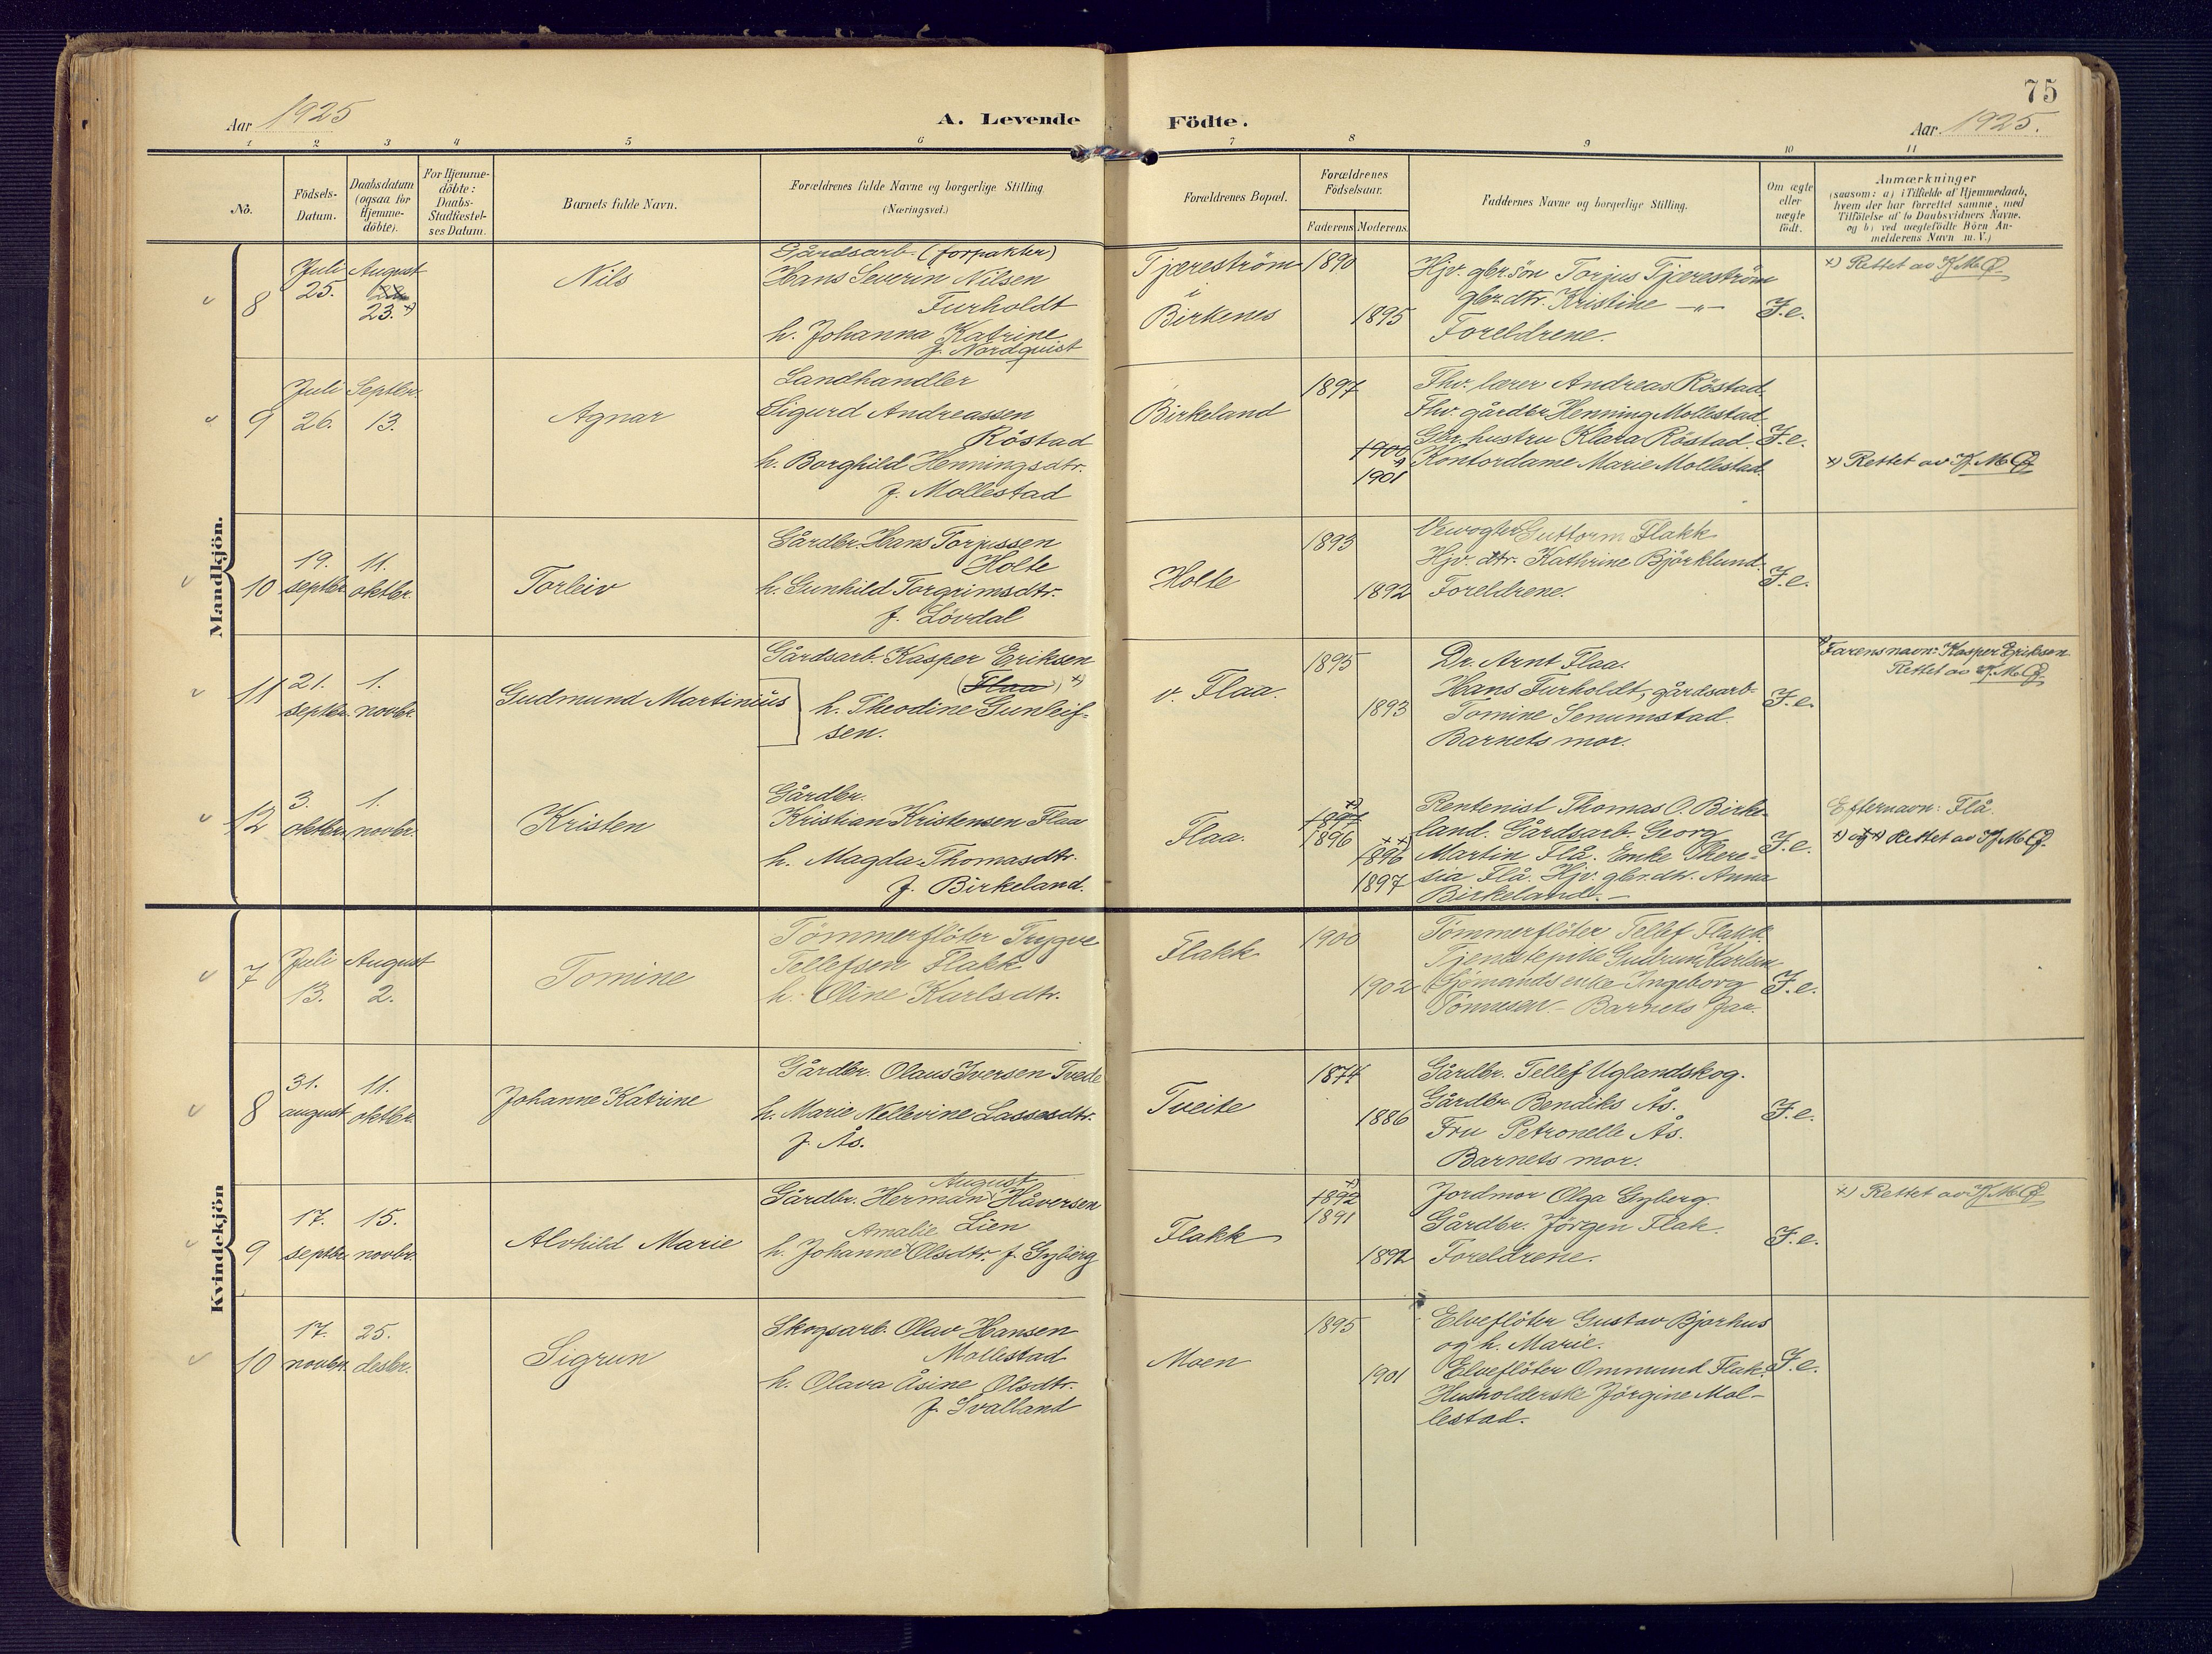 75
Aar 1925
A. Levende Födte.
Aar 1925.
1 2 3 4 5 6 7 8 9 10 11
No.
Födsels-
Datum.
Daabsdatum
(ogsaa for
Hjemme-
döbte).
For Hjemme-
döbte:
Daabs-
Stadfæstel-
ses Datum.
Barnets fulde Navn.
Forældrenes fulde Navne og borgerlige Stilling.
(Næringsvei.)
Forældrenes Bopæl.
Forældrenes
Födselsaar.
Faderens Moderens
Faddernes Navne og borgerlige Stilling.
Om ægte
eller
uægte
födt.
Anmærkninger
(saasom: a) i Tilfælde af Hjemmedaab,
hvem der har forrettet samme, med
Tilföielse af to Daabsvidners Navne.
og b) ved uægtefödte Börn An-
melderens Navn m. V.)
Mandkjön.
8
Juli
25.
August
22
23. x)
Nils
Gårdsarb. (forpakter)
Hans Severin Nilsen
Furholdt
h. Johanna Katrine
f. Nordquist
Tjæreström
i
Birkenes
1890
1895
Hjv. gbr.sön Torjus Tjæreström
gbr.dtr. Kristine — " —
Foreldrene.
F.e.
x) Rettet av
9
Juli
26.
Septbr.
13.
Agnar
Landhandler
Sigurd Andreassen
Röstad
h. Borghild Henningsdtr.
f. Mollestad
Birkeland
1897
1900
1901
Fhv. lærer Andreas Röstad.
Fhv. gårdbr Henning Mollestad.
Gbr. hustru Klara Röstad.
Kontordame Marie Mollestad.
F.e.
x) Rettet av
10
19.
septbr.
11.
oktbr.
Torleiv
Gårdbr. Hans Torjussen
Holte
h. Gunhild Torgrimsdtr.
f. Lövdal
Holte
1893
1892
Veivogter Guttorm Flakk
Hjv. dtr. Kathrine Björklund.
Foreldrene.
F.e.
11
21.
septbr.
1.
novbr.
Gudmund Martinius
Gårdsarb. Kasper Eriksen
(Flaa) x)
h. Theodine Gunleif-
sen.
v. Flaa.
1895
1893
Dr. Arnt Flaa.
Hans Furholdt, gårdsarb.
Tomine Senumstad.
Barnets mor.
F.e.
x) Farens navn: Kasper Eriksen
Rettet av
12
3.
oktbr.
1.
novbr.
Kristen
Gårdbr.
Kristian Kristensen Flaa
h. Magda Thomasdtr.
f. Birkeland.
Flaa.
x)
1897
1896
xx)
1896
1897
Rentenist Thomas O. Birke-
land. Gårdsarb. Georg
Martin Flå. Enke There-
sia Flå. Hjv. gbr.dtr. Anna
Birkeland. —
F.e.
Efternavn: Flå.
x) og xx) Rettet av
Kvindekjön
7
Juli
13.
August
2.
Tomine
Tömmerflöter Trygve
Tellefsen Flakk
h. Oline Karlsdtr.
Flakk
1900
1902
Tömmerflöter Tellef Flakk.
Tjenestepike Gudrun Karlsen
Sjömands enke Ingeborg
Tönnesen. — Barnets far.
F.e.
8
31.
august
11.
oktbr.
Johanne Katrine
Gårdbr. Olaus Iversen Tvede
h. Marie Nellevine Lassesdtr.
f. Ås.
Tveite
1874
1886
Gårdbr. Tellef Uglandskog.
Gårdbr. Bendiks Ås.
Fru Petronelle Ås.
Barnets mor.
F.e.
9
17.
septbr.
15.
novbr.
Alvhild Marie
August
Gårdbr. Herman Håversen
Amalie Lien
h. Johanne Olsdtr. f. Gyberg
Flakk
x)
1892
1891
1892
Jordmor Olga Gyberg
Gårdbr. Jörgen Flak.
Foreldrene.
F.e.
x) Rettet av
10
17.
novbr.
25.
desbr.
Sigrun
Skogsarb. Olav Hansen
Mollestad
h. Olava Åsine Olsdtr.
f. Svalland
Moen
1895
1901
Elveflöter Gustav Bjorhus
og h. Marie.
Elveflöter Ommund Flak.
Husholderske Jörgine Mol-
lestad.
F.e.